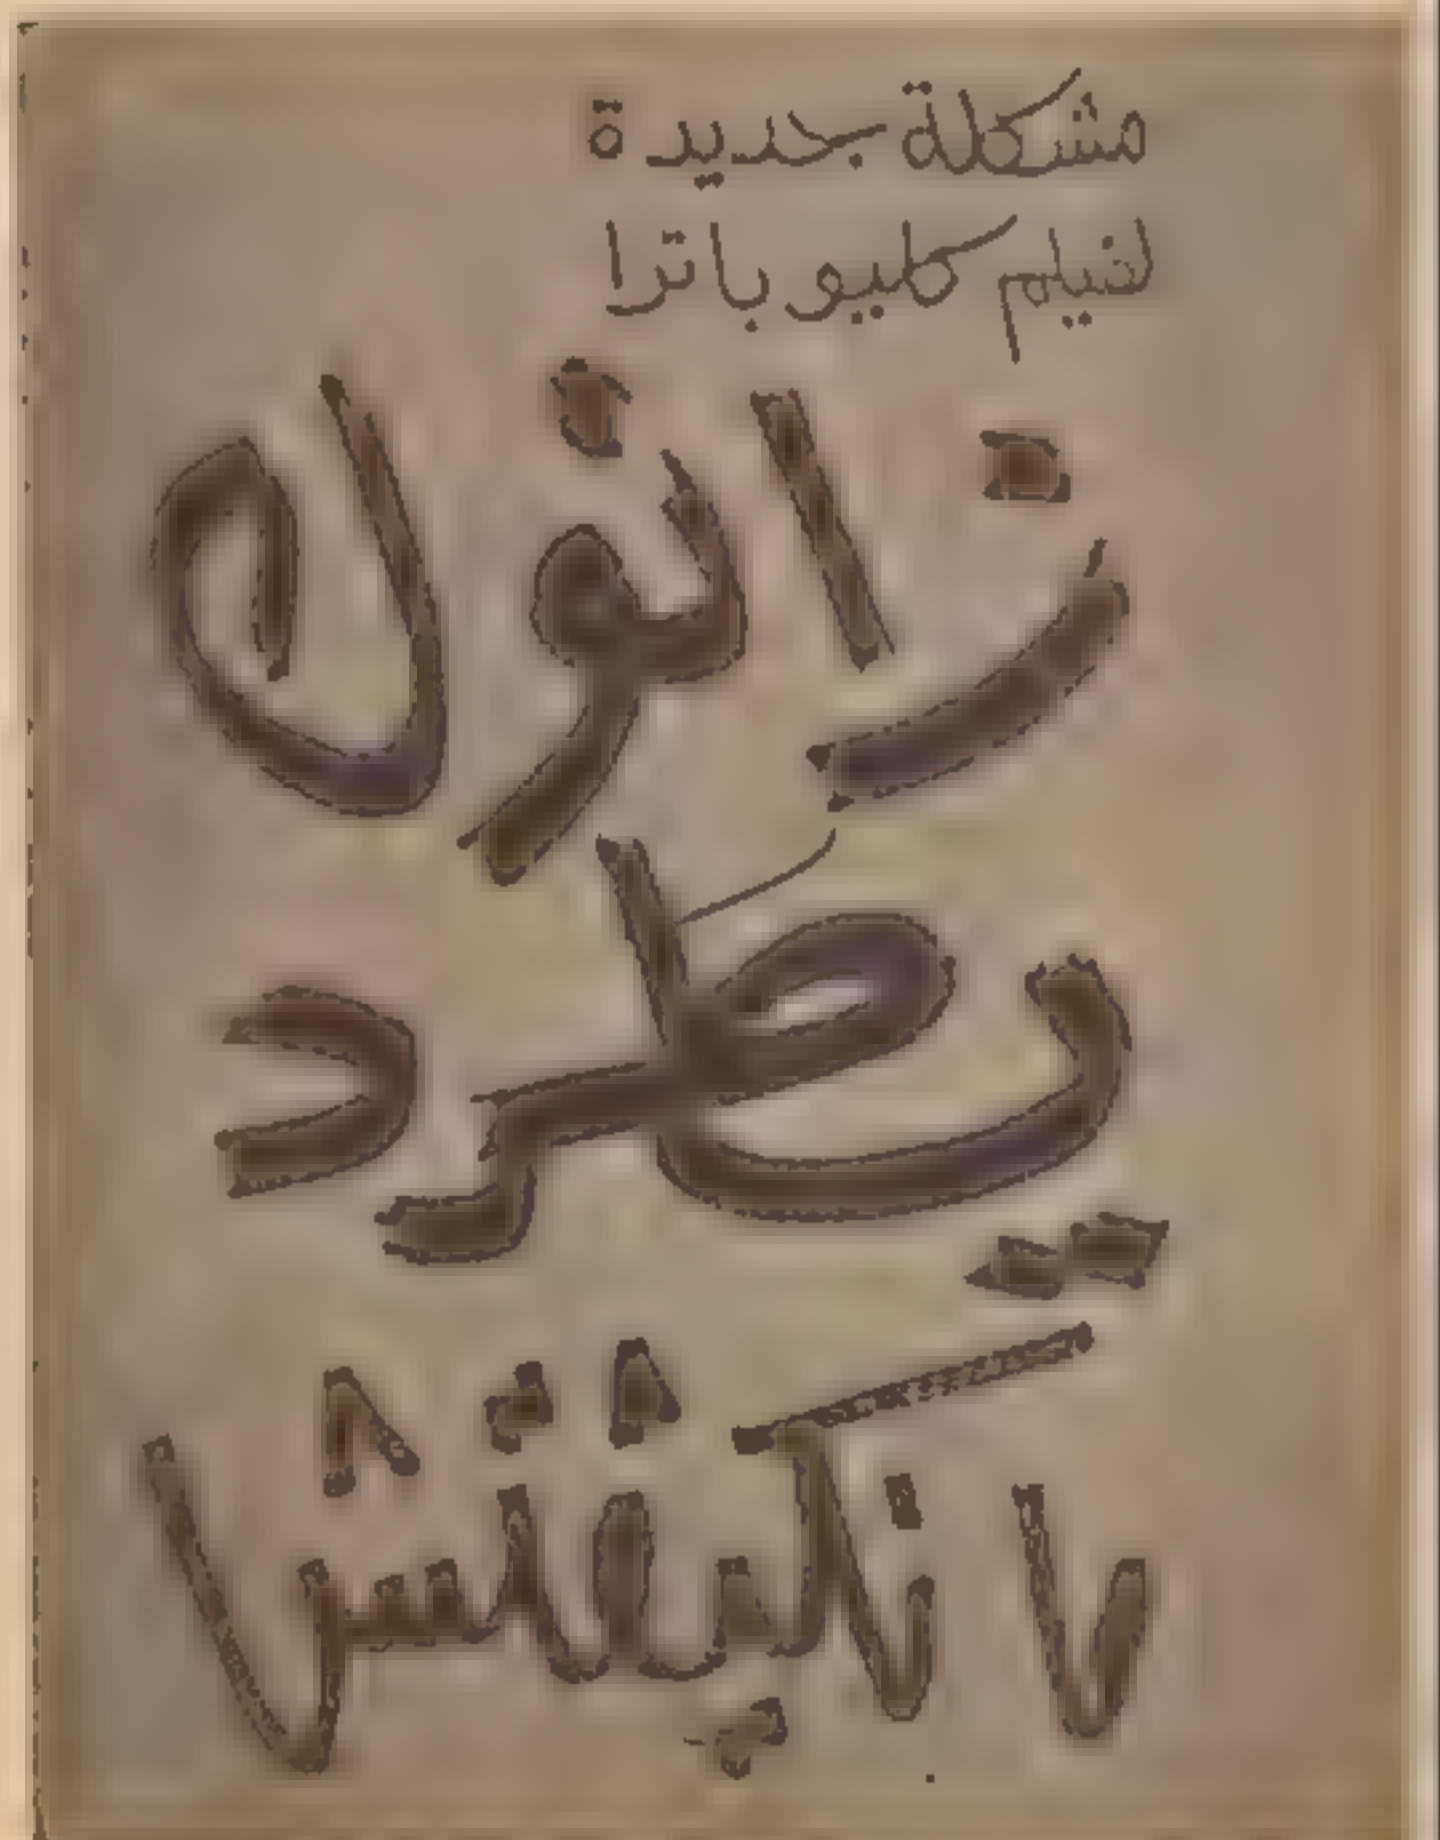 مشكلة جديدة
لفيلم كليوباترا
زانوك
يطرد
مانكيفتش